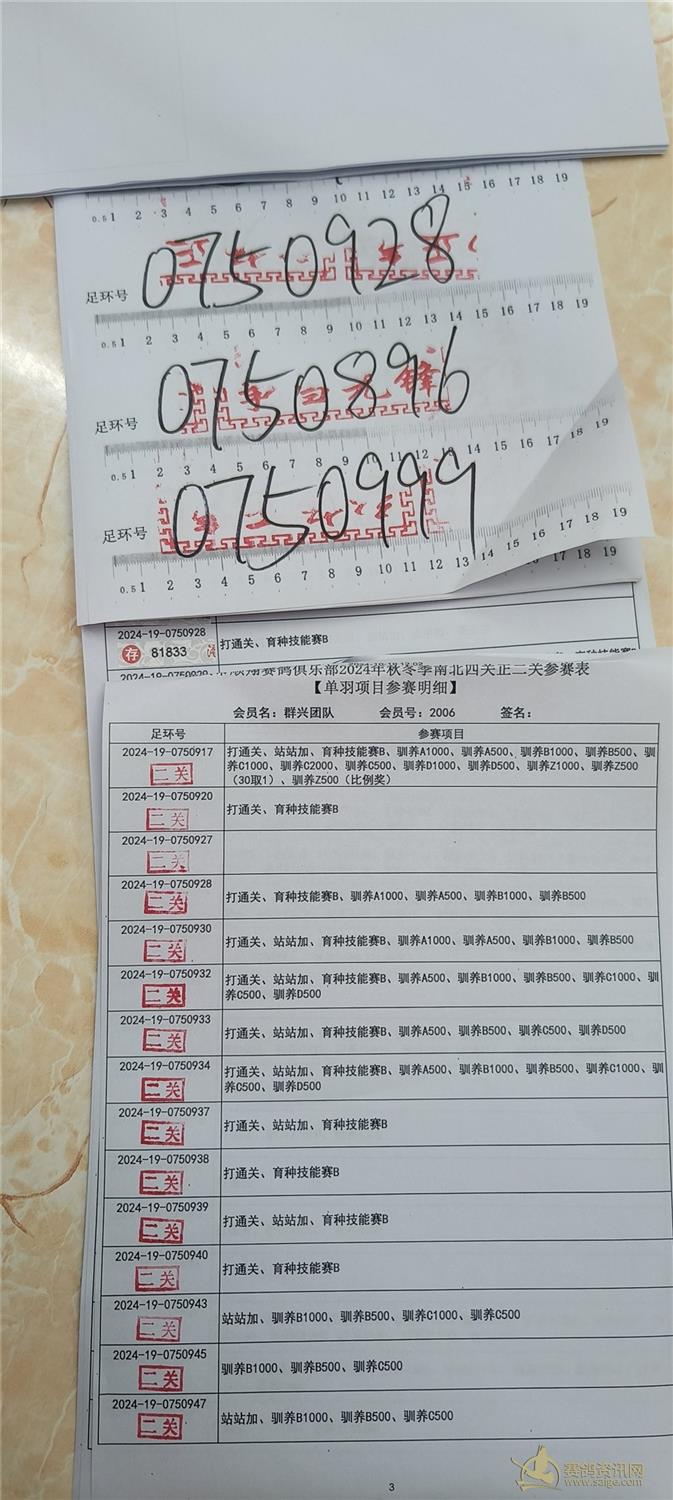 0.5 1 2 3 4 5 6 7 8 9 10 11 12 13 14 15 16 17 18 19
足环号 0750928
0.5 1 2 3 4 5 6 7 8 9 10 11 12 13 14 15 16 17 18 19
足环号 0750896
0.5 1 2 3 4 5 6 7 8 9 10 11 12 13 14 15 16 17 18 19
足环号 0750999
0.5 1 2 3 4 5 6 7 8 9 10 11 12 13 14 15 16 17 18 19
2024-19-0750928 打通关、育种技能赛B
存 81833
顺翔赛鸽俱乐部2024年秋冬季南北四关正二关参赛表
【单羽项目参赛明细】
会员名：群兴团队 会员号：2006 签名：
足环号 参赛项目
2024-19-0750917 打通关、站站加、育种技能赛B、驯养A1000、驯养A500、驯养B1000、驯养B500、驯
二关 养C1000、驯养C2000、驯养C500、驯养D1000、驯养D500、驯养Z1000、驯养Z500
（30取1）、驯养Z500（比例奖）
2024-19-0750920 打通关、育种技能赛B
二关
2024-19-0750927
二关
2024-19-0750928 打通关、育种技能赛B、驯养A1000、驯养A500、驯养B1000、驯养B500
二关
2024-19-0750930 打通关、站站加、育种技能赛B、驯养A1000、驯养A500、驯养B1000、驯养B500
二关
2024-19-0750932 打通关、站站加、育种技能赛B、驯养A500、驯养B1000、驯养B500、驯养C1000、驯
二关 养C500、驯养D500
2024-19-0750933 打通关、站站加、育种技能赛B、驯养A500、驯养B500、驯养C500、驯养D500
二关
2024-19-0750934 打通关、站站加、育种技能赛B、驯养A500、驯养B1000、驯养B500、驯养C1000、驯
二关 养C500、驯养D500
2024-19-0750937 打通关、站站加、育种技能赛B
二关
2024-19-0750938 打通关、育种技能赛B
二关
2024-19-0750939 打通关、站站加、育种技能赛B
二关
2024-19-0750940 打通关、育种技能赛B
二关
2024-19-0750943 站站加、驯养B1000、驯养B500、驯养C1000、驯养C500
二关
2024-19-0750945 驯养B1000、驯养B500、驯养C500
二关
2024-19-0750947 站站加、驯养B1000、驯养B500、驯养C500
二关
3
赛鸽资讯网
www.saige.com